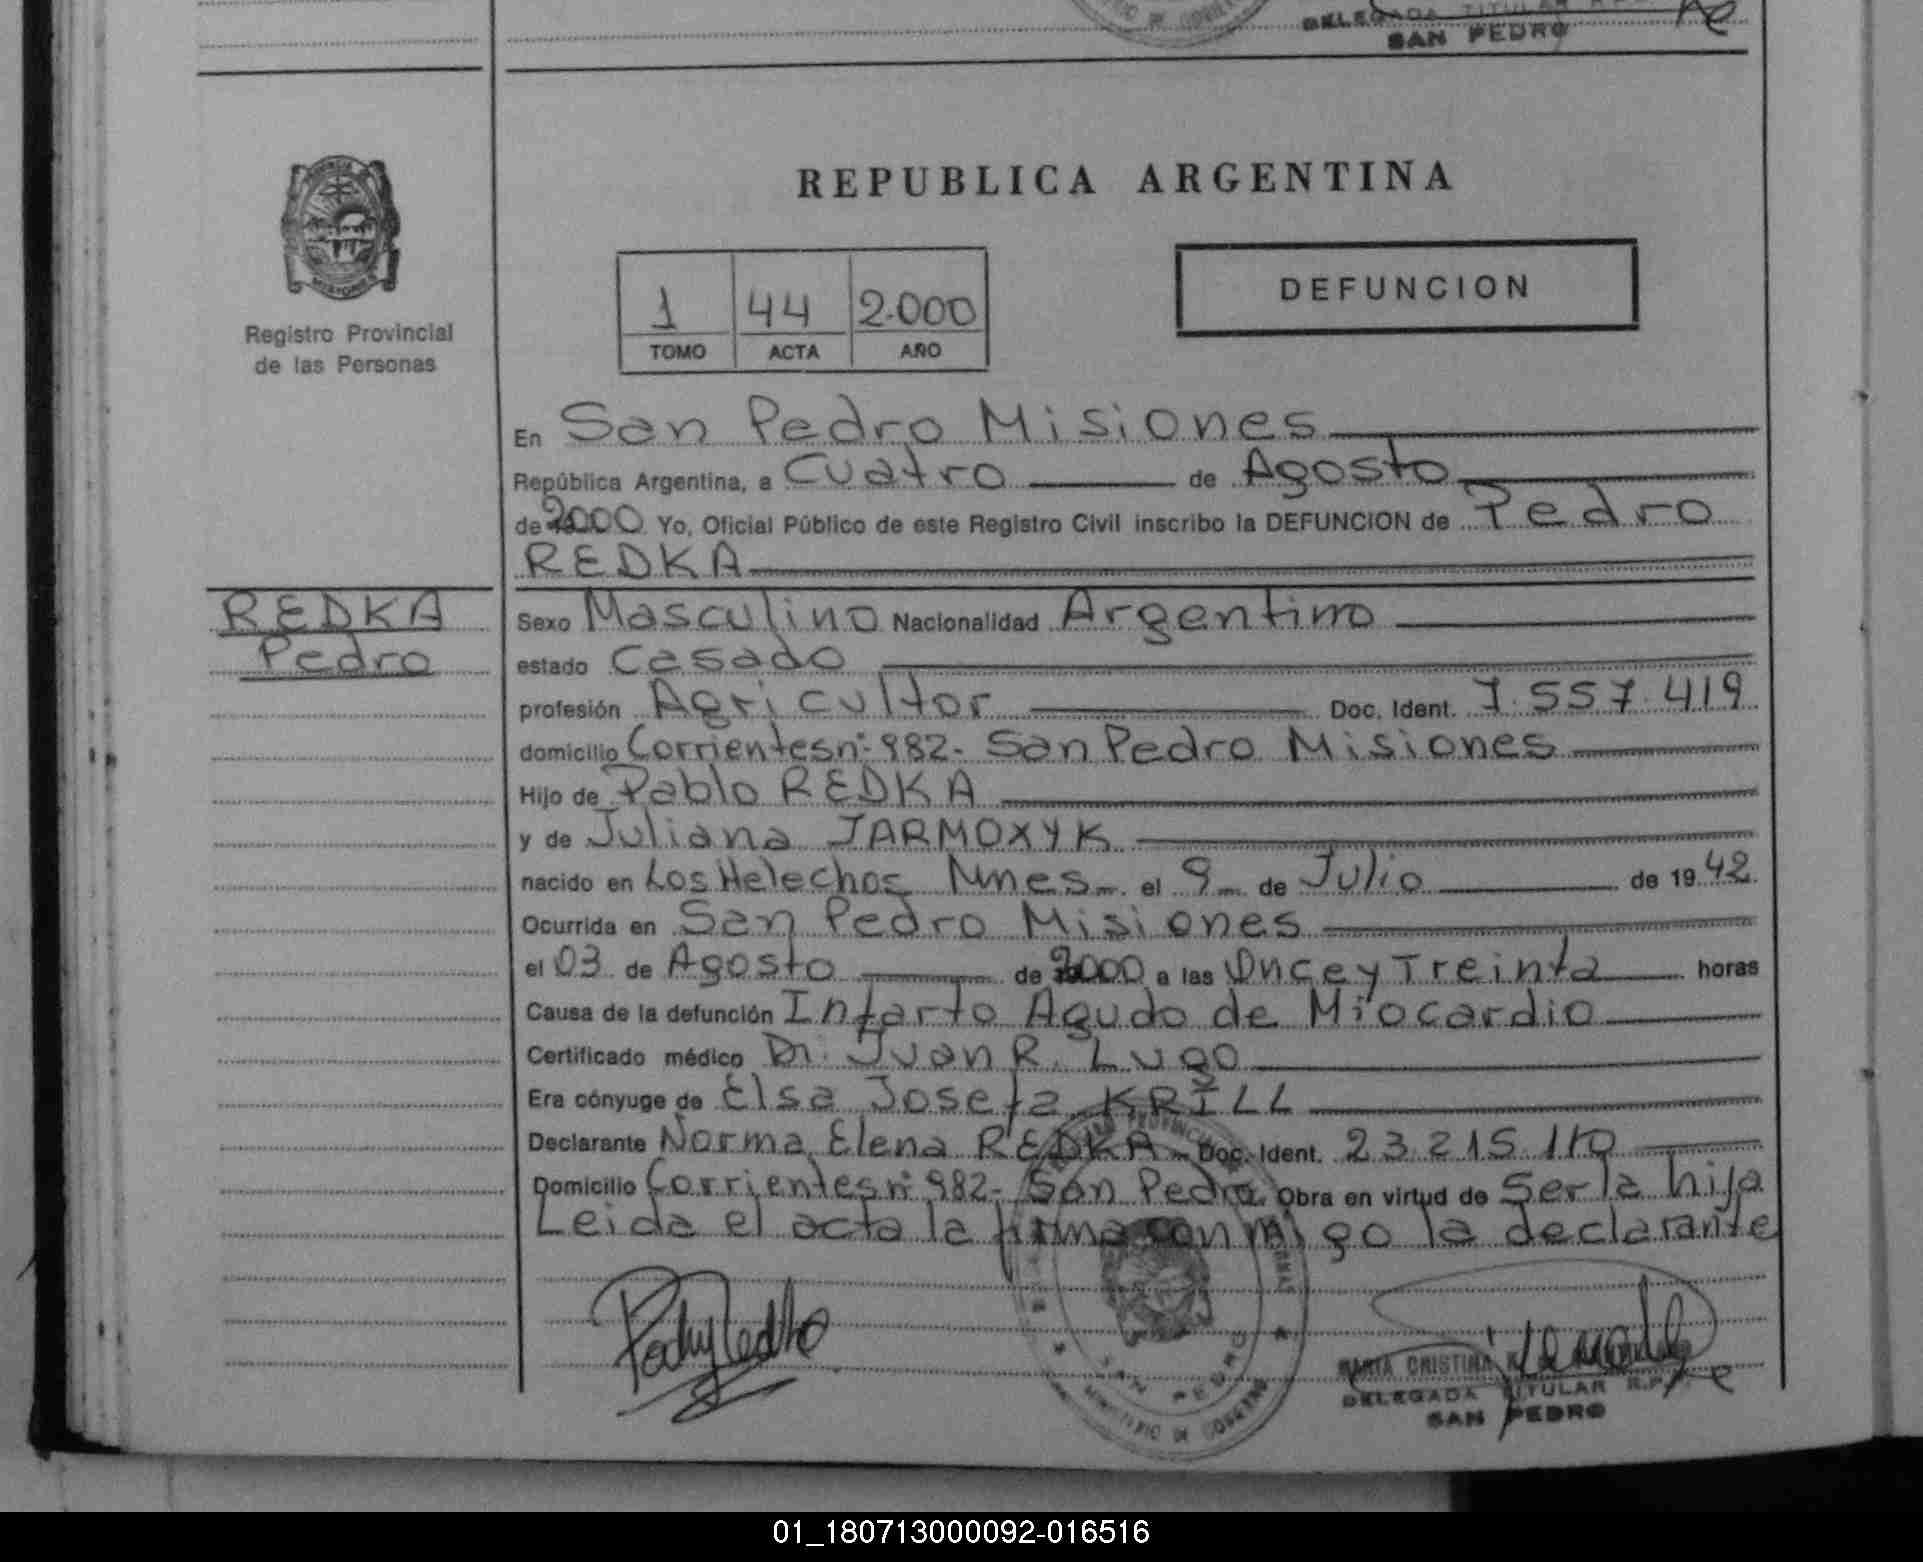 DELEGADA TITULAR
SAN PEDRO
REPUBLICA ARGENTINA
Registro Provincial
de las Personas
1 44 2.000
TOMO ACTA AÑO
DEFUNCION
En San Pedro Misiones
República Argentina, a Cuatro de Agosto
de 2000 Yo, Oficial Público de este Registro Civil inscribo la DEFUNCION de Pedro
REDKA
REDKA
Pedro
Sexo Masculino Nacionalidad Argentino
estado Casado
profesión Agricultor Doc. Ident. 7.557.419
domicilio Corrientes nº 982- San Pedro Misiones
Hijo de Pablo REDKA
y de Juliana JARMOXYK
nacido en Los Helechos Mnes el 9 de Julio de 1942
Ocurrida en San Pedro Misiones
el 03 de Agosto de 2000 a las Once y Treinta horas
Causa de la defunción Infarto Agudo de Miocardio
Certificado médico Dr. Juan R. Lugo
Era cónyuge de Elsa Josefa KRILL
Declarante Norma Elena REDKA Doc. Ident. 23.215.110
Domicilio Corrientes nº 982- San Pedro. Obra en virtud de Ser la hija
Leida el acta la firma con migo la declarante
SAN PEDRO
MINISTERIO DE GOBIERNO
MARIA CRISTINA
DELEGADA TITULAR R.P.
SAN PEDRO
01_180713000092-016516